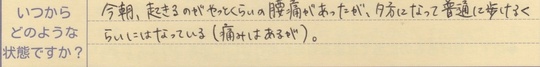 いつから
どのような
状態ですか？
今朝、起きるのがやっとくらいの腰痛があったが、夕方になって普通に歩けるく
らいにはなっている(痛みはあるが)。